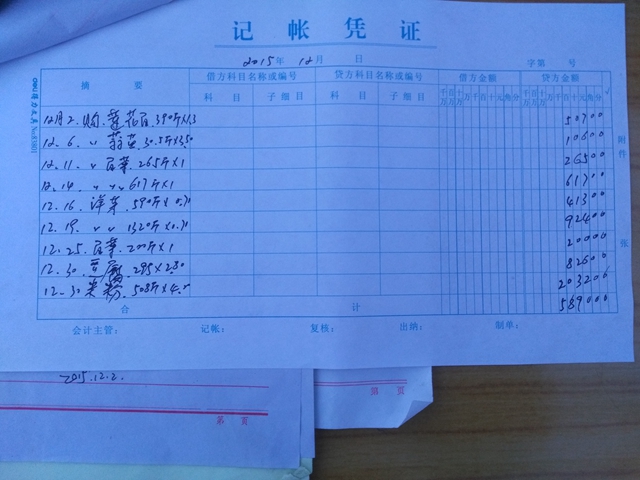 记帐凭证
2015年 12月 日 字第 号
摘要 借方科目名称或编号 贷方科目名称或编号 借方金额 贷方金额 √
科目 子细目 科目 子细目 千百十万千百十元角分 千百十万千百十元角分
12月2. 购莲花白.390斤×1.3 50700
12.6. 〃 蒜苗.30.5斤×3.50 10600
12.11. 〃 白菜.265斤×1 26500
12.14. 〃 〃 617斤×1 61700
12.16. 洋菜.590斤×0.71 41300
12.19. 〃 〃 1320斤×0.71 92400
12.25. 白菜.200斤×1 20000
12.30. 豆腐.295×2.80 82600
12.30 米粉.508斤×4.0 203200
合计 589000
附件 张
会计主管: 记帐: 复核: 出纳: 制单:
2015.12.2.
第 页
第 页